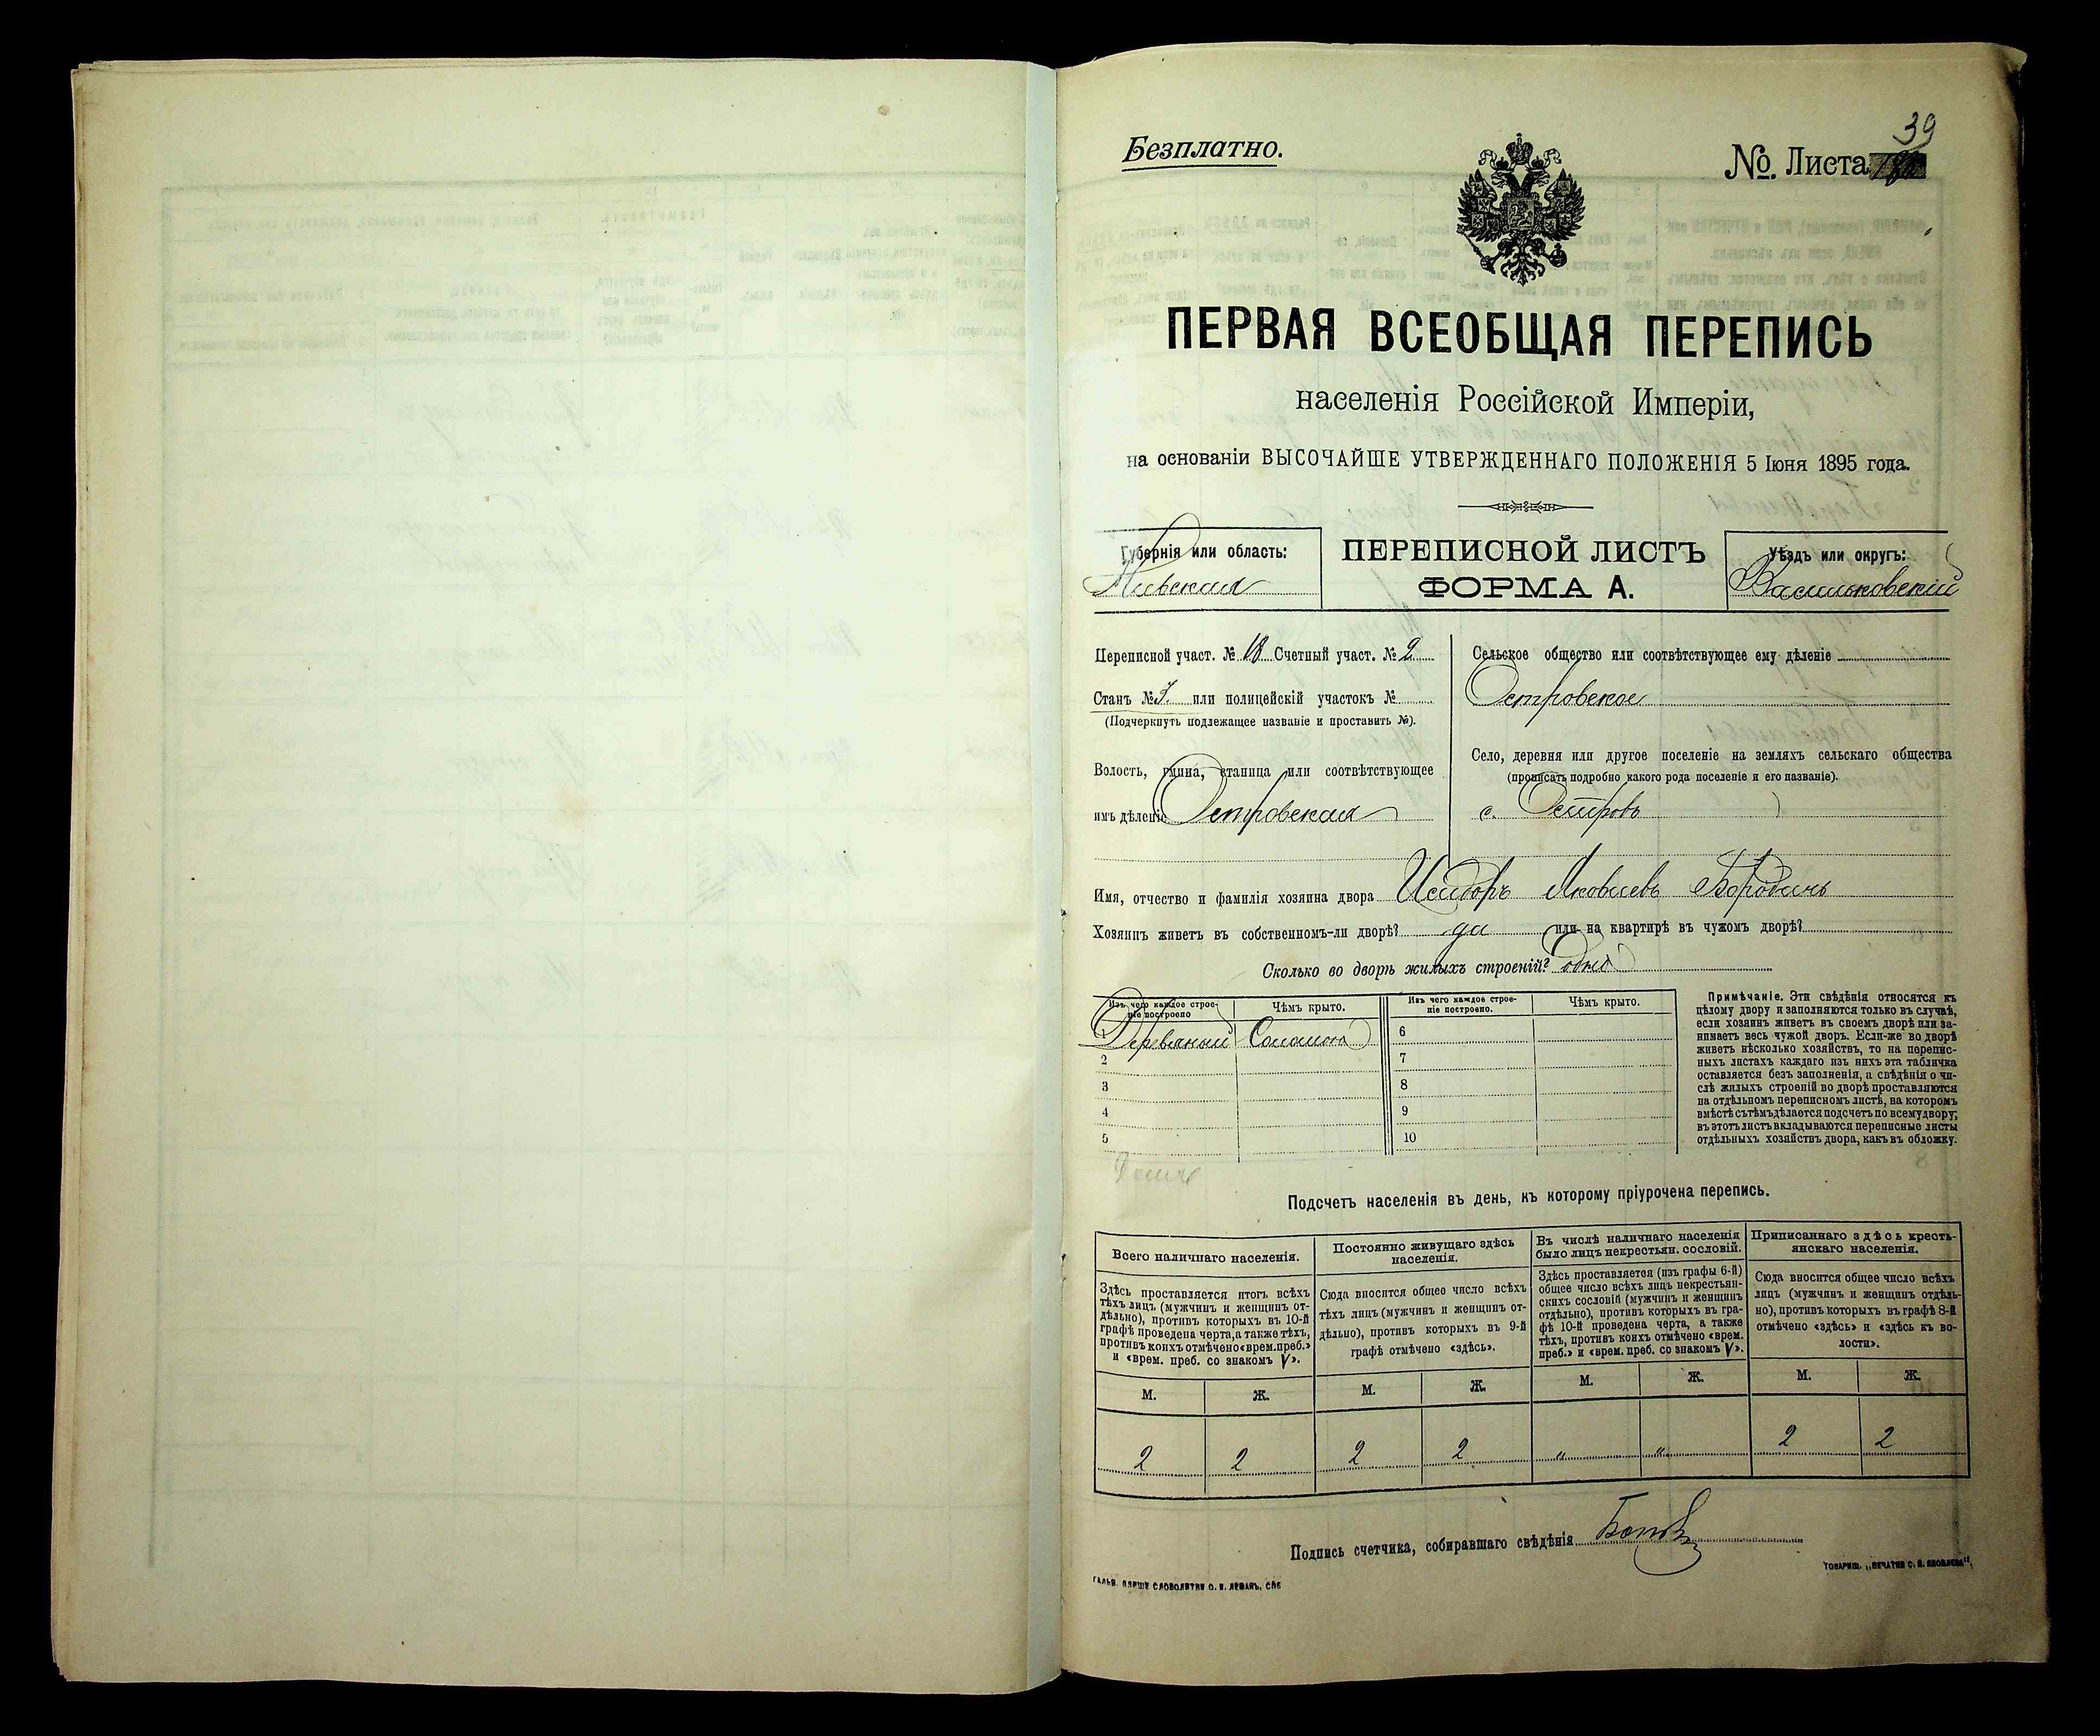 39
Безплатно.
№. Листа
ПЕРВАЯ ВСЕОБЩАЯ ПЕРЕПИСЬ
населенія Россійской Имперіи,
на основаніи ВЫСОЧАЙШЕ УТВЕРЖДЕННАГО ПОЛОЖЕНІЯ 5 Іюня 1895 года.
Губернія или область:
Кіевская
ПЕРЕПИСНОЙ ЛИСТЪ
ФОРМА А.
Уѣздъ или округъ:
Васильковскій
Переписной участ. № 18 Счетный участ. № 2
Станъ № 3. или полицейскій участокъ №
(Подчеркнуть подлежащее названіе и проставить №).
Волость, гмина, станица или соотвѣтствующее
имъ дѣленіе Островская
Сельское общество или соотвѣтствующее ему дѣленіе
Островское
Село, деревня или другое поселеніе на земляхъ сельскаго общества
(прописать подробно какого рода поселеніе и его названіе).
с. Островъ
Имя, отчество и фамилія хозяина двора Исидоръ Яковлевъ Бородинъ
Хозяинъ живетъ въ собственномъ-ли дворѣ? да или на квартирѣ въ чужомъ дворѣ?
Сколько во дворѣ жилыхъ строеній? одно
Изъ чего каждое строе-
ніе построено
Чѣмъ крыто.
Изъ чего каждое строе-
ніе построено.
Чѣмъ крыто.
1 Деревяный Соломою 6
2 7
3 8
4 9
5 10
Примѣчаніе. Эти свѣдѣнія относятся къ
цѣлому двору и заполняются только въ случаѣ,
если хозяинъ живетъ въ своемъ дворѣ или за-
нимаетъ весь чужой дворъ. Если-же во дворѣ
живетъ нѣсколько хозяйствъ, то на перепис-
ныхъ листахъ каждаго изъ нихъ эта табличка
оставляется безъ заполненія, а свѣдѣнія о чи-
слѣ жилыхъ строеній во дворѣ проставляются
на отдѣльномъ переписномъ листѣ, на которомъ
вмѣстѣ съ тѣмъ дѣлается подсчетъ по всему двору;
въ этотъ листъ вкладываются переписные листы
отдѣльныхъ хозяйствъ двора, какъ въ обложку.
Подсчетъ населенія въ день, къ которому пріурочена перепись.
Всего наличнаго населенія.
Здѣсь проставляется итогъ всѣхъ
тѣхъ лицъ (мужчинъ и женщинъ от-
дѣльно), противъ которыхъ въ 10-й
графѣ проведена черта, а также тѣхъ,
противъ коихъ отмѣчено «врем. преб.»
и «врем. преб. со знакомъ V».
Постоянно живущаго здѣсь
населенія.
Сюда вносится общее число всѣхъ
тѣхъ лицъ (мужчинъ и женщинъ от-
дѣльно), противъ которыхъ въ 9-й
графѣ отмѣчено «здѣсь».
Въ числѣ наличнаго населенія
было лицъ некрестьян. сословій.
Здѣсь проставляется (изъ графы 6-й)
общее число всѣхъ лицъ некрестьян-
скихъ сословій (мужчинъ и женщинъ
отдѣльно), противъ которыхъ въ гра-
фѣ 10-й проведена черта, а также
тѣхъ, противъ коихъ отмѣчено «врем.
преб.» и «врем. преб. со знакомъ V».
Приписаннаго здѣсь кресть-
янскаго населенія.
Сюда вносится общее число всѣхъ
лицъ (мужчинъ и женщинъ отдѣль-
но), противъ которыхъ въ графѣ 8-й
отмѣчено «здѣсь» и «здѣсь къ во-
лости».
М. Ж. М. Ж. М. Ж. М. Ж.
2 2 2 2 " " 2 2
Подпись счетчика, собиравшаго свѣдѣнія
ТОВАРИЩ. „ПЕЧАТНЯ С. П. ЯКОВЛЕВА“.
ГАЛЬВ. КЛИШЕ СЛОВОЛИТНИ О. И. ЛЕМАНЪ, СПБ